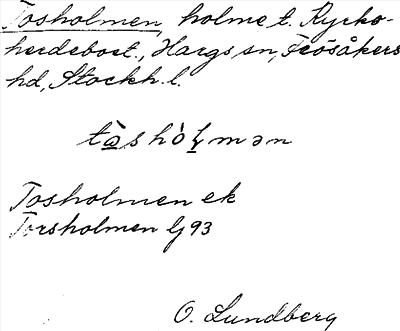 Tosholmen, holme t. Kyrko-
herdebost., Hargs sn, Frösåkers
hd, Stockh. l.
tɷ̀shòḷmən
Tosholmen ek
Torsholmen Lj 93
O. Lundberg